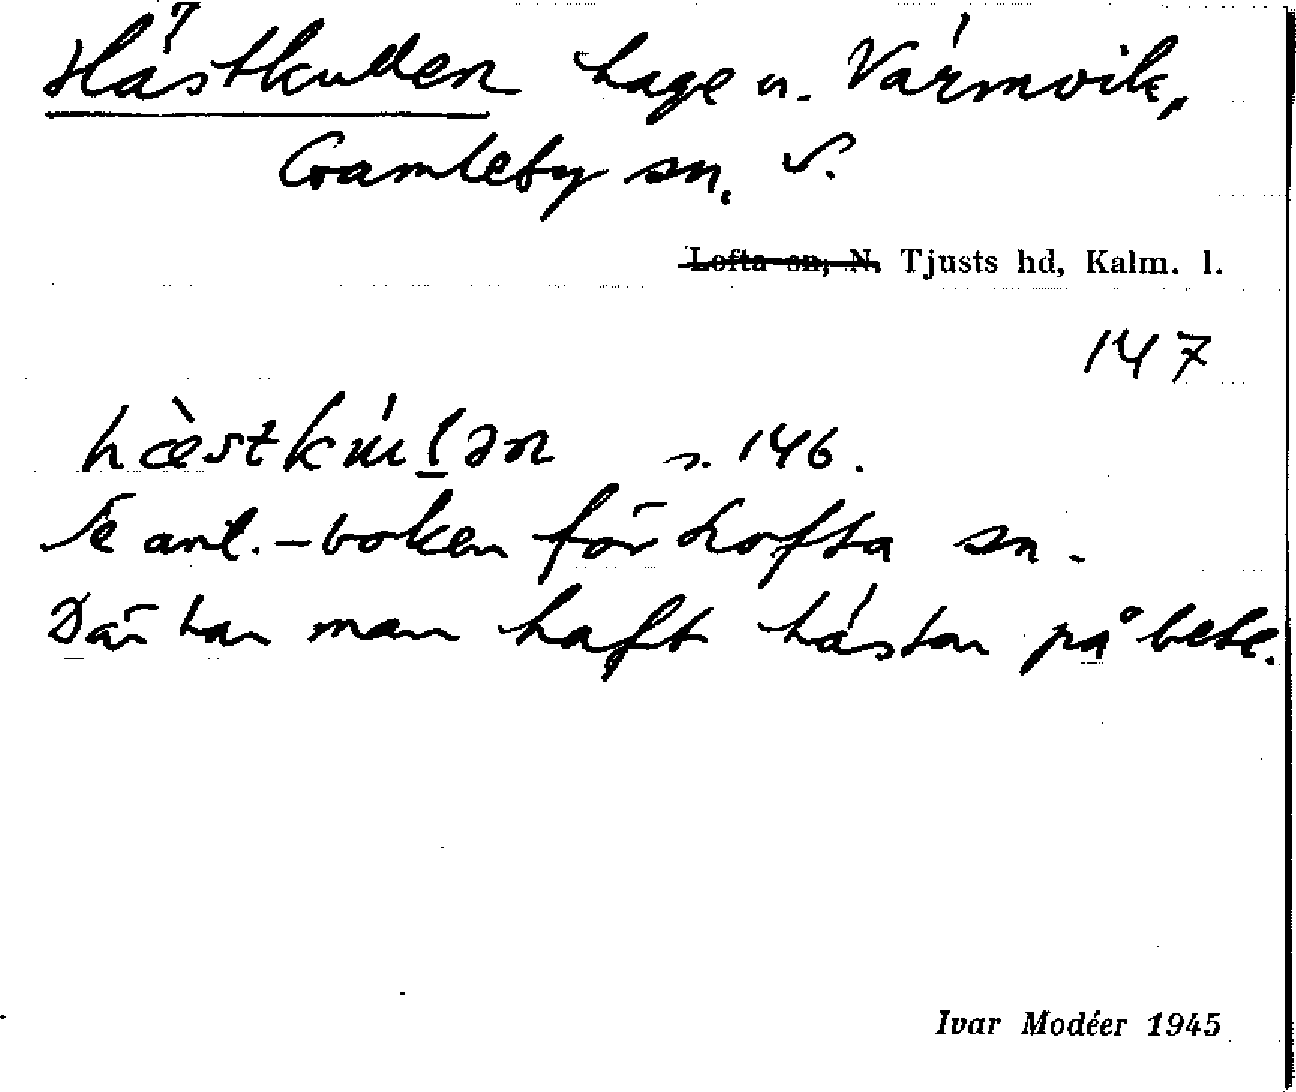 Hästkullen hage u. Värmvik,
Gamleby sn, S.
Lofta sn, N. Tjusts hd, Kalm. l.
147
hæ̀stkúl̲ən s. 146.
Se ant.-boken för Lofta sn.
Där har man haft hästar på bete.
Ivar Modéer 1945